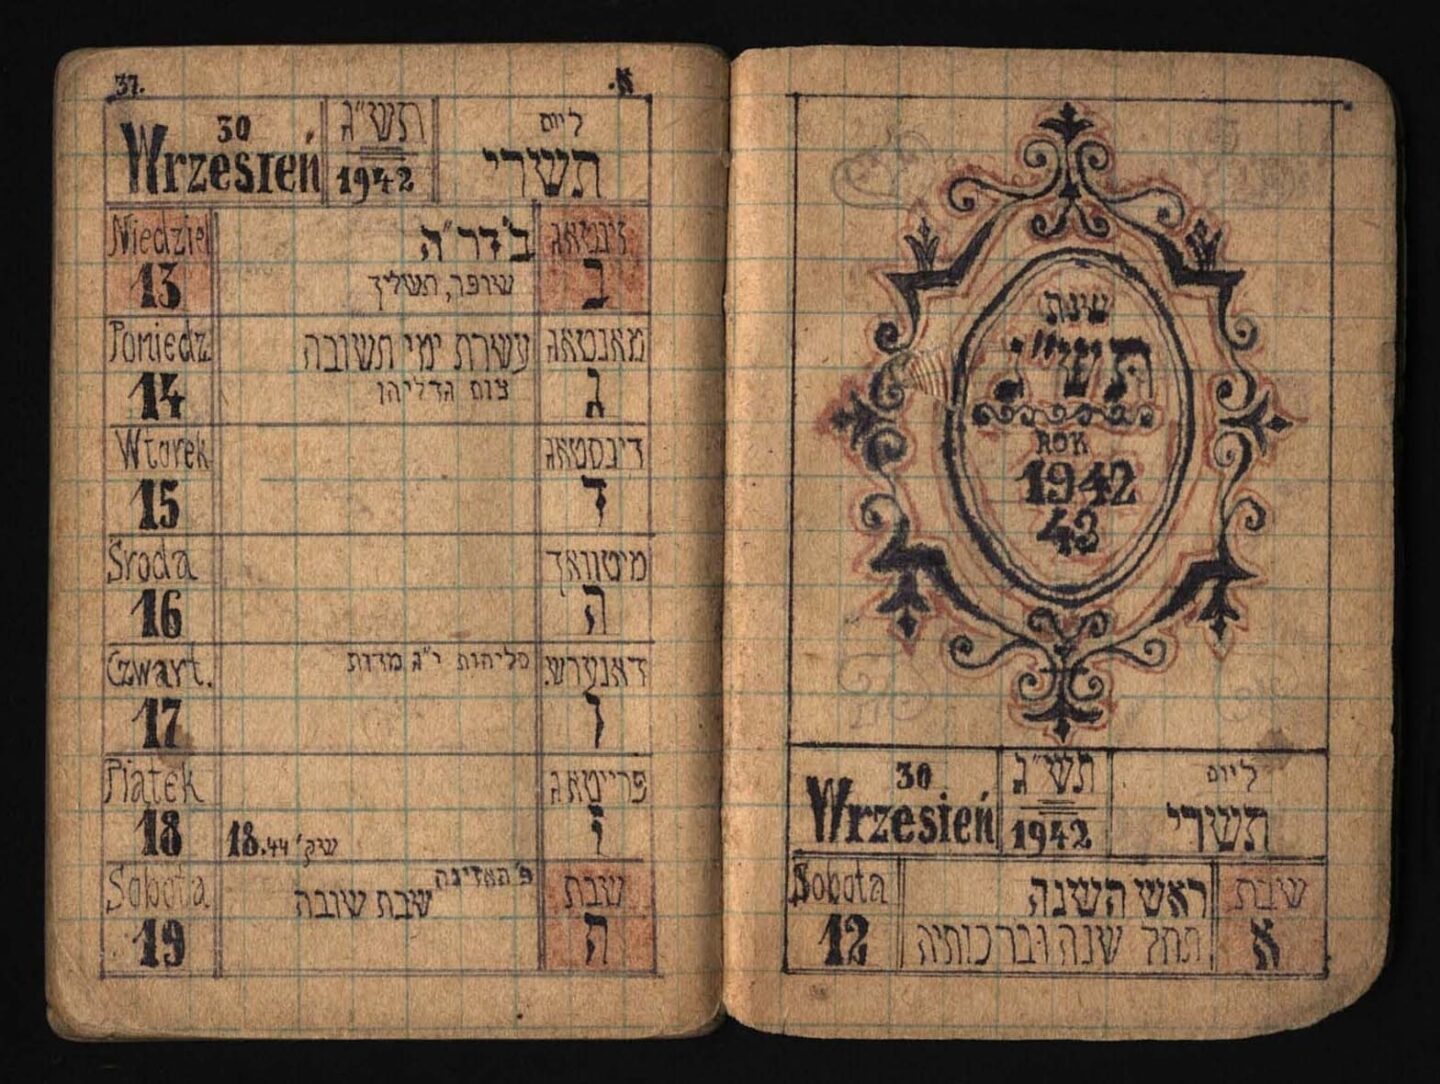 שנת
תש״ג
ROK
1942
43
30 Wrzesień תש״ג 1942 ל יום תשרי
Sobota 12 ראש השנה שבת א
תחל שנה וברכותיה
37. א.
30 Wrzesień תש״ג 1942 ל יום תשרי
Niedziel ב׳דר״ה זונטאג
13 שופר, תשליך ב
Poniedz עשרת ימי תשובה מאנטאג
14 צום גדליהו ג
Wtorek דינסטאג
15 ד
Sroda מיטוואך
16 ה
Czwart. סליחות י״ג מדות דאנערש.
17 ו
Piatek פרייטאג
18 18.44 ז
Sobota פ׳ האזינה שבת
19 שבת שובה ח